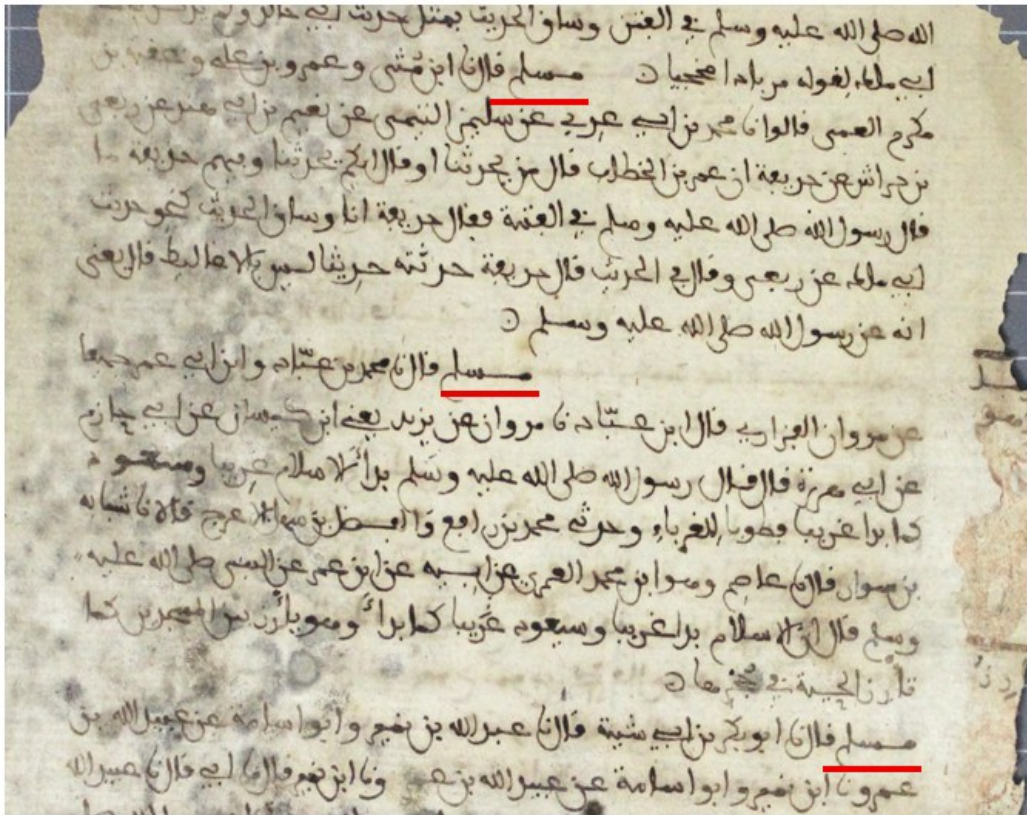 الله صلى الله عليه وسلم في الفتن وساق الحديث بمثل حديث ابي خالد ولم
ابي مالك لقوله مربادا مجخيا مسلم قال نا ابن مثنى وعمرو بن علي وعقبة بن
مكرم العمي قالوا نا محمد بن ابي عدي عن سليمن التيمي عن نعيم بن ابي هند عن ربعي
بن حراش عن حذيفة ان عمر بن الخطاب قال من يحدثنا او قال ايكم يحدثنا وفيهم حذيفة ما
قال رسول الله صلى الله عليه وسلم في الفتنة فقال حذيفة انا وساق الحديث كنحو حديث
ابي مالك عن ربعي وقال في الحديث قال حذيفة حدثته حديثا ليس بالاغاليط قال يعني
انه عن رسول الله صلى الله عليه وسلم
مسلم قال نا محمد بن عباد وابن ابي عمر جميعا
عن مروان الفزاري قال ابن عباد نا مروان عن يزيد يعني ابن كيسان عن ابي حازم
عن ابي هريرة قال قال رسول الله صلى الله عليه وسلم بدأ الاسلام غريبا وسيعود
كما بدا غريبا فطوبا للغرباء وحدثني محمد بن رافع والفضل بن سهل الاعرج قالا نا شبابة
بن سوار قال نا عاصم وهو ابن محمد العمري عن ابيه عن ابن عمر عن النبي صلى الله عليه
وسلم قال ان الاسلام بدا غريبا وسيعود غريبا كما بدأ وهو يأرز بين المسجدين كما
تأرز الحية في جحرها
مسلم قال نا ابو بكر بن ابي شيبة قال نا عبد الله بن نمير وابو اسامة عن عبيد الله بن
عمر ونا ابن نمير وابو اسامة عن عبيد الله بن عمر ونا ابن نمير قال نا ابي قال نا عبيد الله